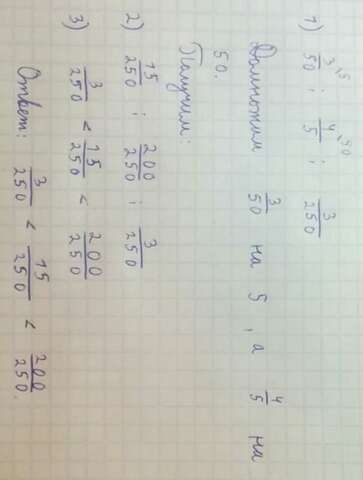 1) 3/50 ,5 ; 4/5 ,50 ; 3/250
Домножим 3/50 на 5, а 4/5 на
50.
Получим:
2) 15/250 ; 200/250 ; 3/250
3) 3/250 < 15/250 < 200/250
Ответ: 3/250 < 15/250 < 200/250.